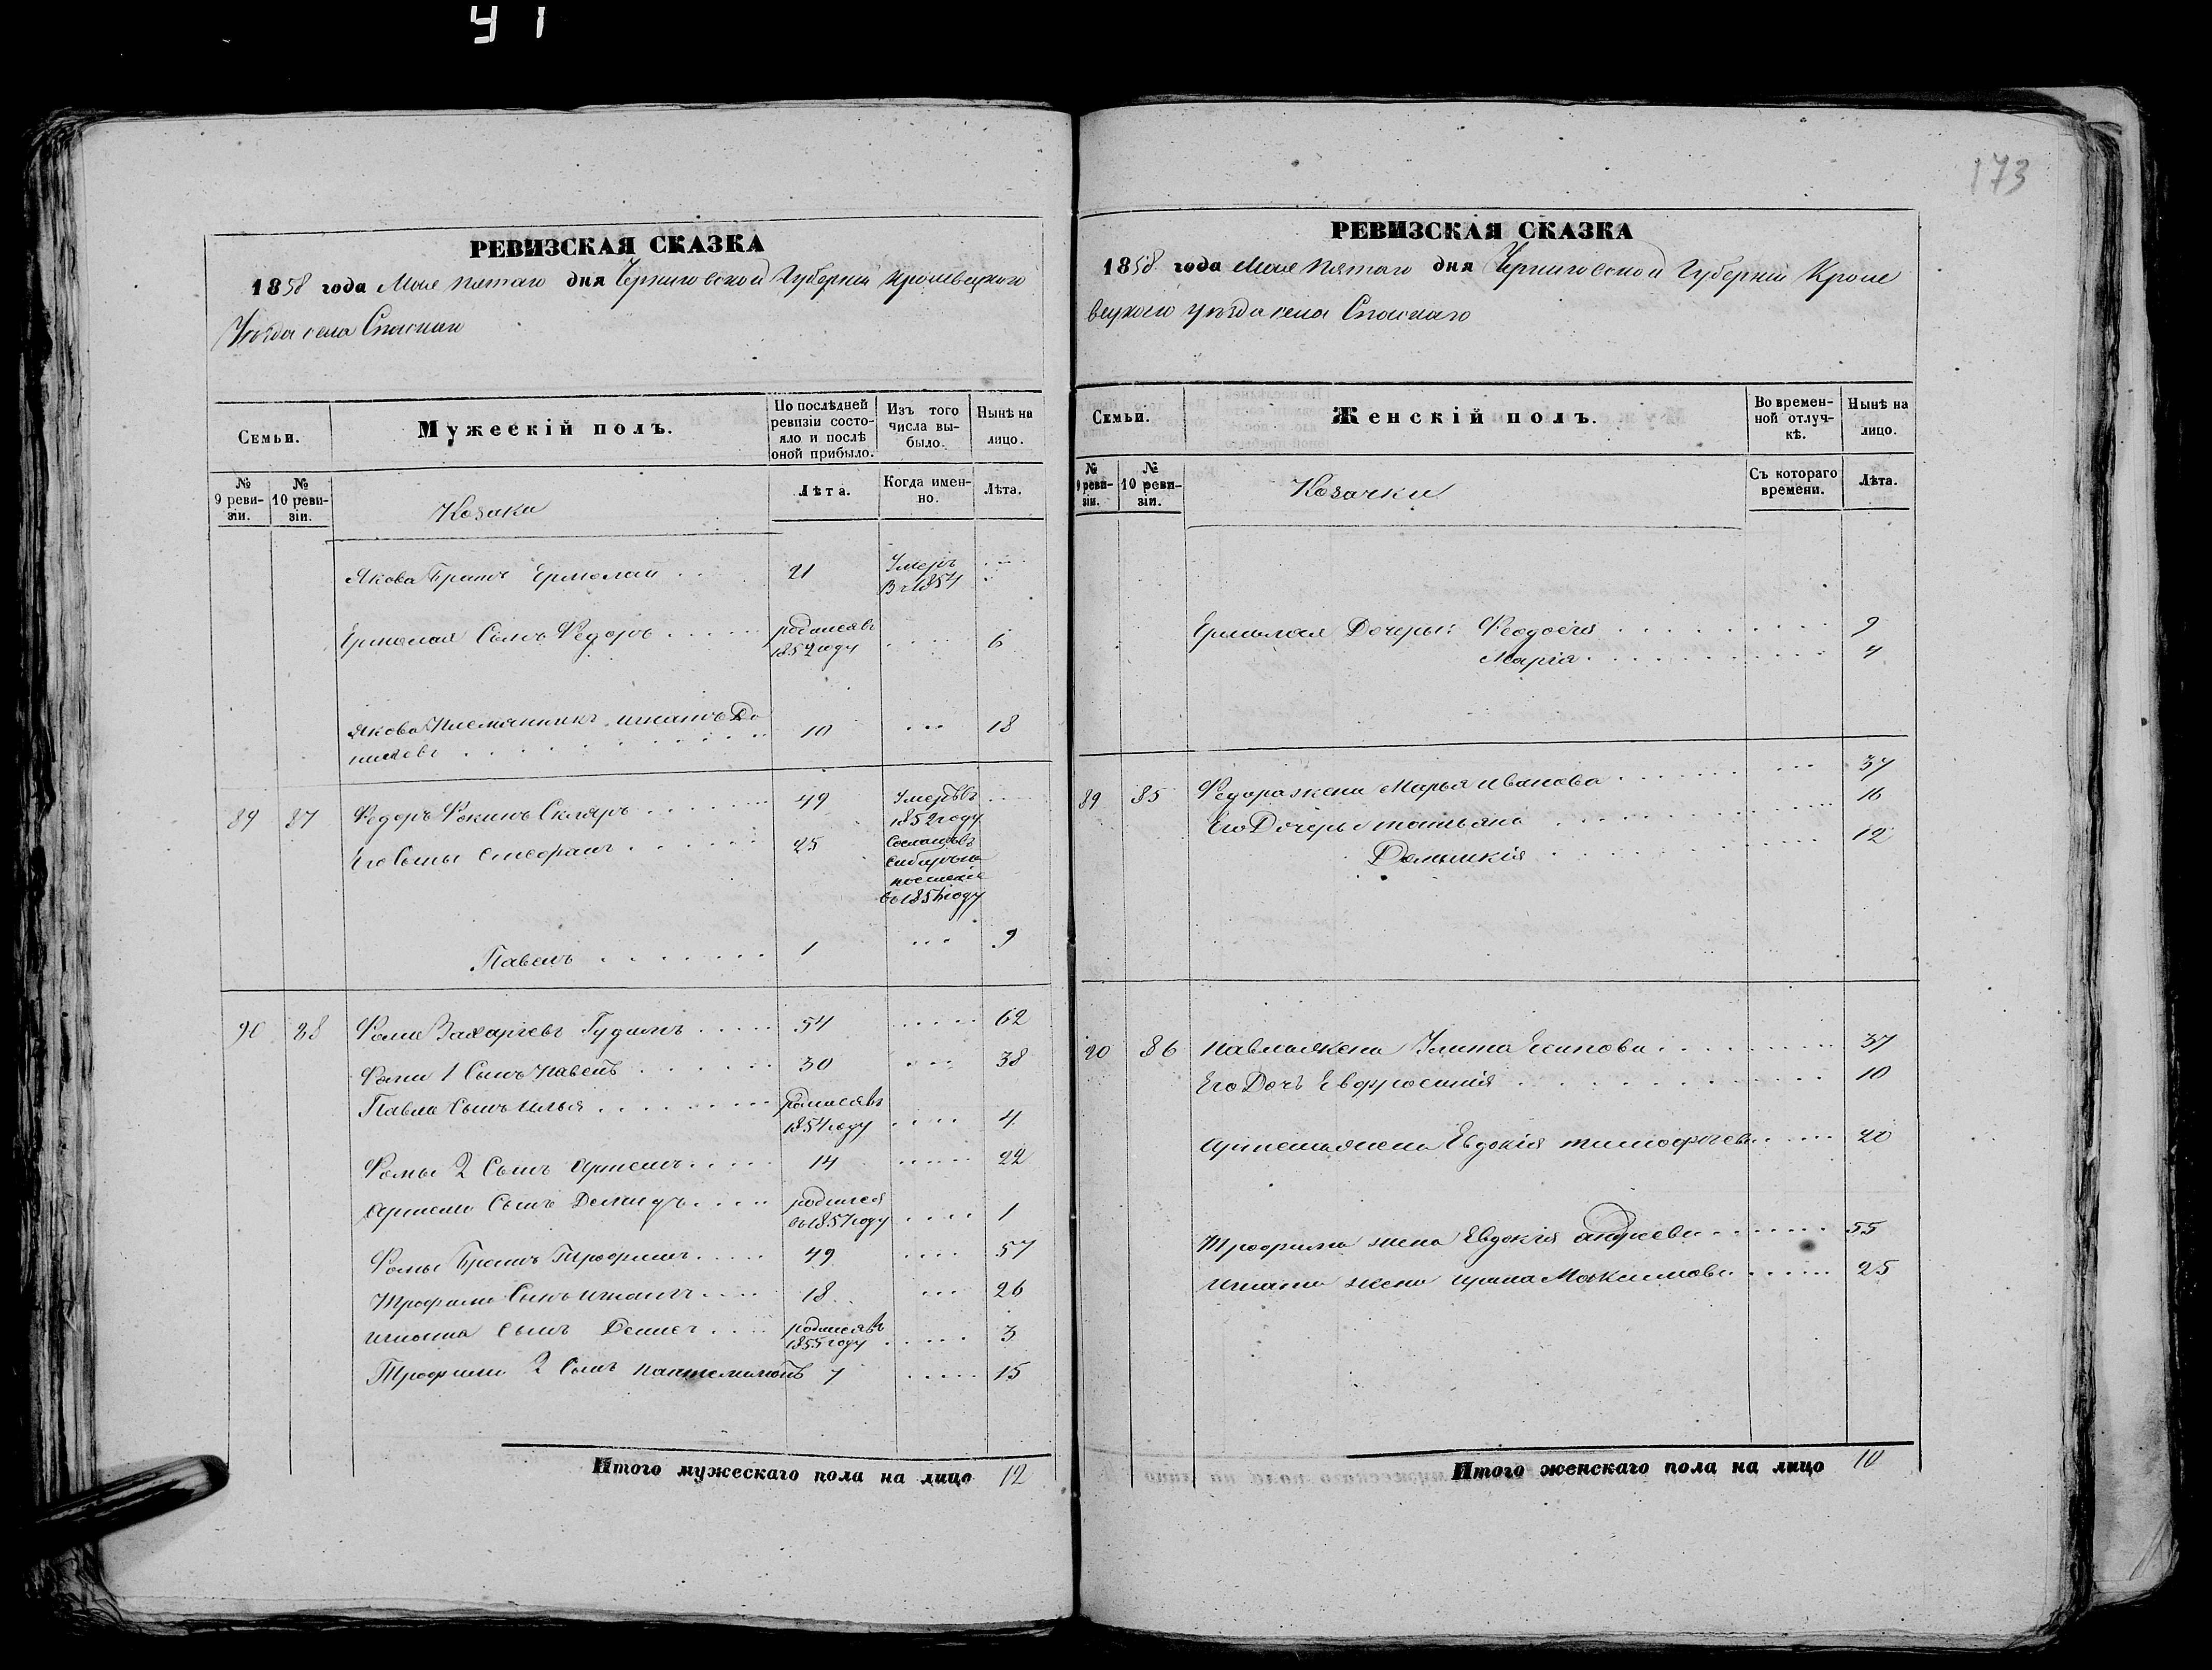 У 1
РЕВИЗСКАЯ СКАЗКА
1858 года Мая пятаго дня Черниговской Губерніи Кролевецкого
Уѣзда села Спаскаго
Семьи.
Мужескій полъ.
По послѣдней ревизіи состояло и послѣ оной прибыло.
Изъ того числа выбыло.
Нынѣ на лицо.
№ 9 ревизіи.
№ 10 ревизіи.
Козаки
Лѣта.
Когда именно.
Лѣта.
Якова Братъ Ермолай . . 21 Умеръ
В 1854
Ермолая Сынъ Федоръ . . . . . родился въ
1852 году . . . . 6
Якова Племянникъ игнатъ Да
ниловъ . . . . . . . . . . . 10 . . . 18
89 87 Федоръ Фокинъ Скляръ . . . . . . . 49 Умеръ въ
1852 году
Его Сыны Стефанъ . . . . . . 25 Сосланъ въ
Сибирь на
поселеніе
въ 1856 году
Павелъ . . . . . . . 1 . . . 9
90 88 Фома Захаріевъ Гудимъ . . . . . 54 . . . . . 62
Фомы 1 Сынъ Павелъ . . . . . . 30 . . . 38
Павла Сынъ Илья . . . . . . . . родился въ
1854 году . . . . 4
Фомы 2 Сынъ Артемъ . . . . . 14 . . . . . 22
Артема Сынъ Демидъ . . . . родился
въ 1857 году . . . . 1
Фомы Братъ Трофимъ . . . . 49 . . . . 57
Трофима Сынъ игнатъ . . . . 18 . . . 26
игната Сынъ Денисъ . . . . родился въ
1855 году . . . . . 3
Трофима 2 Сынъ пантелимонъ 7 . . . . . 15
Итого мужескаго пола на лицо 12
173
РЕВИЗСКАЯ СКАЗКА
1858 года Мая пятаго дня Черниговской Губерніи Кроле
вецкого уѣзда села Спаскаго
Семьи.
Женскій полъ.
Во временной отлучкѣ.
Нынѣ на лицо.
№ 9 ревизіи.
№ 10 ревизіи.
Козачки
Съ котораго времени.
Лѣта.
Ермолая Дочеры: Феодосія . . . . . . . . . 9
Марія . . . . . . . . . . 4
89 85 Федора жена Марья иванова . . . . . . . . . 37
Его Дочеры татьяна . . . . . . . . . . . 16
Домникія . . . . . . . . . . 12
90 86 Павла жена Улита Есипова . . . . . . . . 37
Его Дочь Евфросинія . . . . . . . . . . 10
Артема жена Евдокія тимофѣева . . . . . 20
Трофима жена Евдокія андреева . . . . . . 55
игната жена ирина Максимова . . . . . 25
Итого женскаго пола на лицо 10